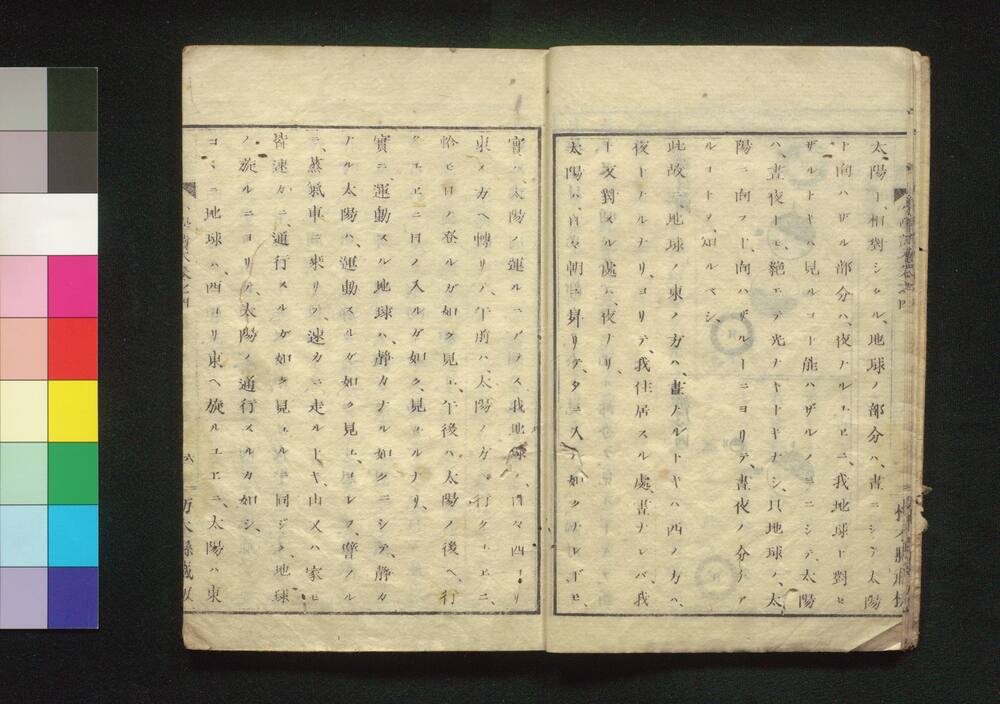 太陽ト、相對シタル、地球ノ部分ハ、晝ニシテ、太陽
ト向ハザル部分ハ、夜ナルユヱニ、我地球ト對セ
ザルトキハ、見ルコト能ハザルノミニシテ、太陽
ハ、晝夜トモ、絶エテ光ナキトキナシ、只地球ノ、太
陽ニ向フト、向ハザルトニヨリテ、晝夜ノ分チア
ルコトヲ、知ルベシ、
此故ニ、地球ノ東ノ方ハ、晝ナルトキハ、西ノ方ハ、
夜トナルナリ、ヨリテ、我住居スル處、晝ナレバ、我
ト反對スル處ハ、夜ナリ、
太陽ハ、日々朝ニ昇リテ、夕ニ入ル如クナレドモ、
實ハ、太陽ノ運ルニアラズ、我地球ノ、日々西ヨリ
東ノ方ヘ轉リテ、午前ハ、太陽ノ方ヘ、行クユヱニ、
恰モ日ノ登ルガ如ク見エ、午後ハ、太陽ノ後ヘ、行
クユヱニ、日ノ入ルガ如ク、見ユルナリ、
實ニ、運動スル地球ハ、靜カナル如クニシテ、靜カ
ナル太陽ハ、運動スルガ如ク見ユ、コレヲ、譬フル
ニ、蒸氣車ニ乘リテ、速カニ走ルトキ、山又ハ家モ
皆速カニ、通行スルガ如ク見ユルト同ジク、地球
ノ旋ルニヨリテ、太陽ノ通行スルカ如シ、
コヽニ地球ハ、西ヨリ東ヘ旋ルユエニ、太陽ハ東
六